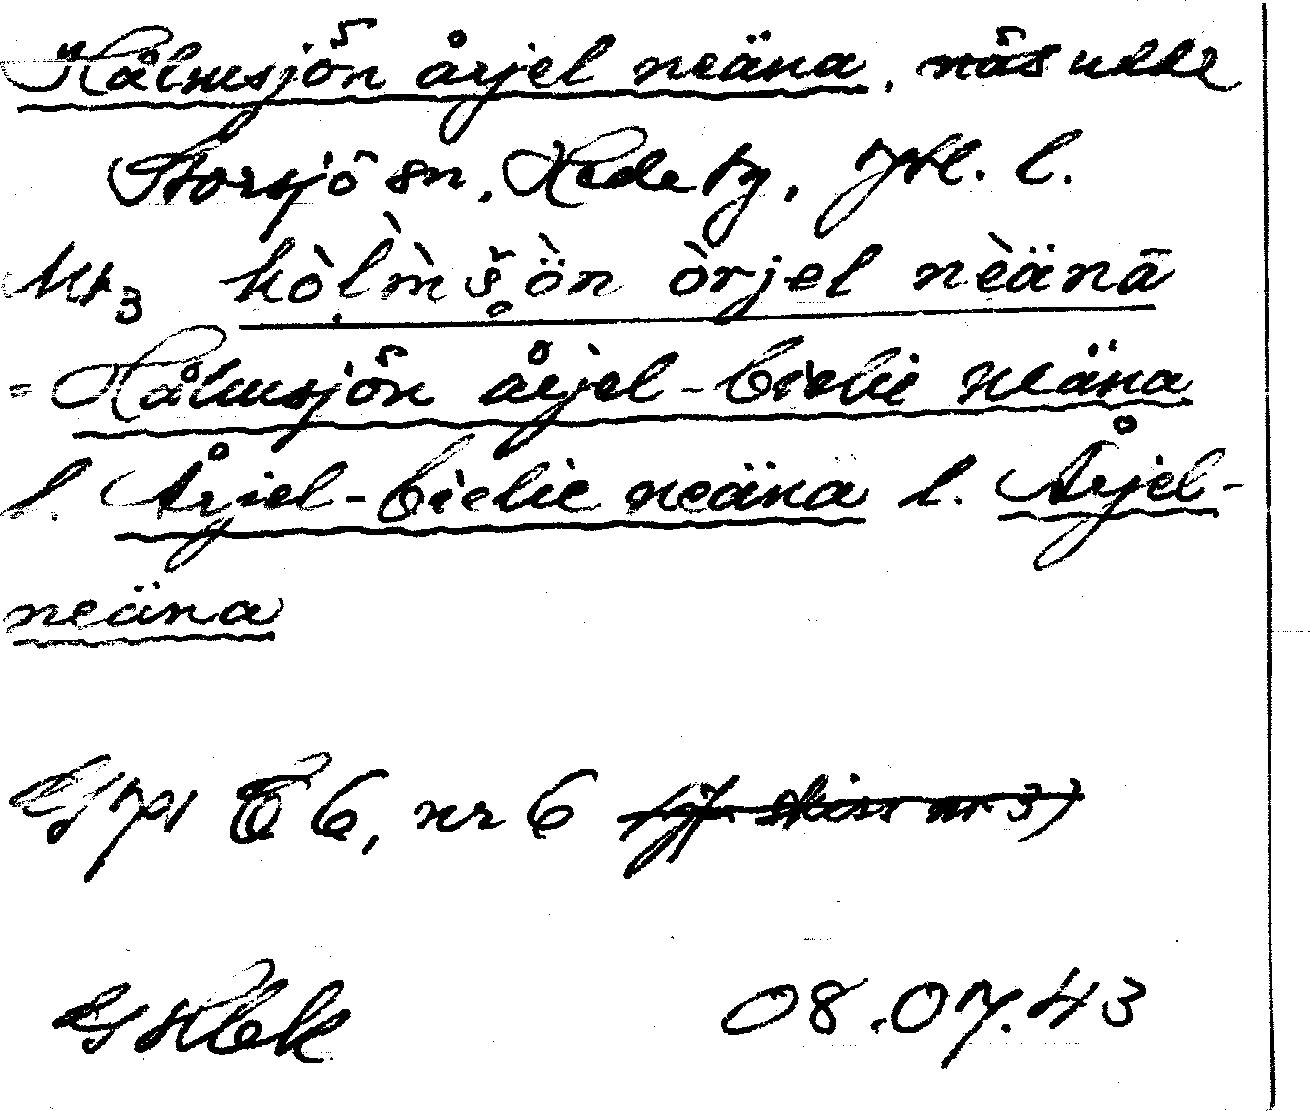 Hålmsjön årjel neäna, näsudde
Storsjö sn, Hede tg, Jtl. l.
Mt3 hòl̀m̀š̥ö̀n òrjel nèänā
= Hålmsjön årjel-bielie neäna
l. Årjel-bielie neäna l. Årjel-
neäna
E 6, nr 6
08.07.43